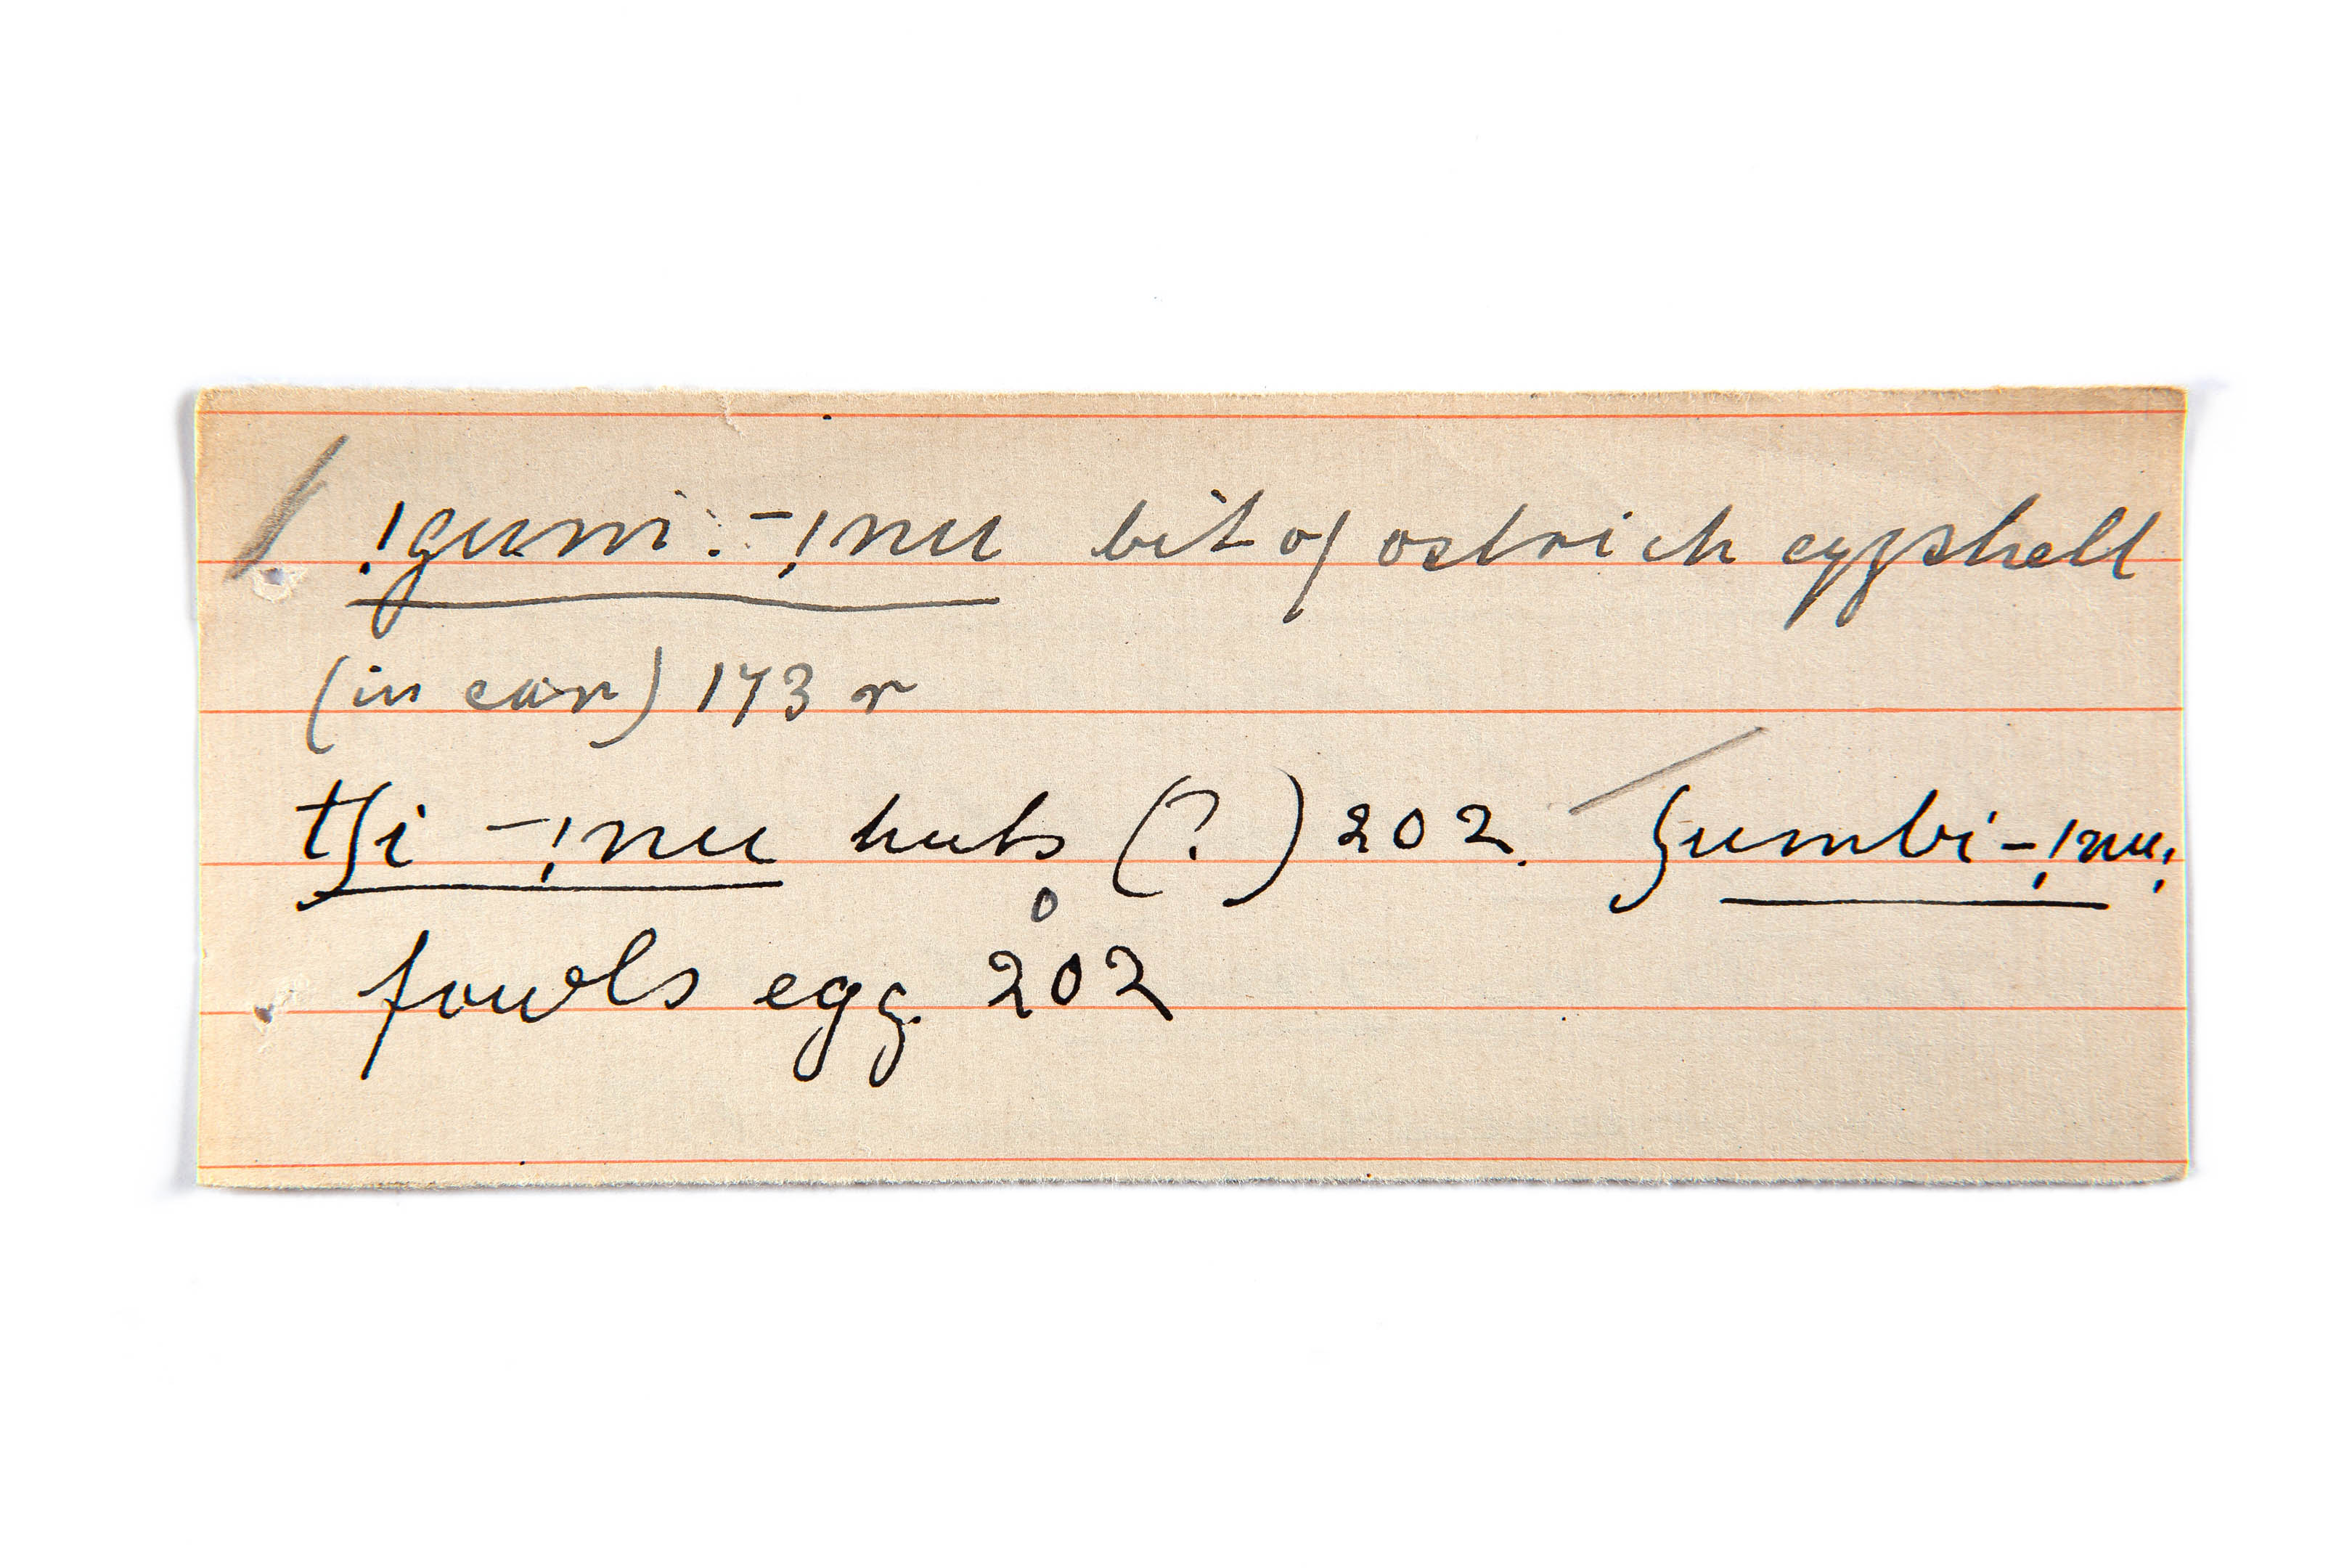 !gumi: -!nu bit of ostrich eggshell
(in ear) 173 r
tʃi -!nu huts (?) 202. ʃumbi-!nu;
fowls egg. 202